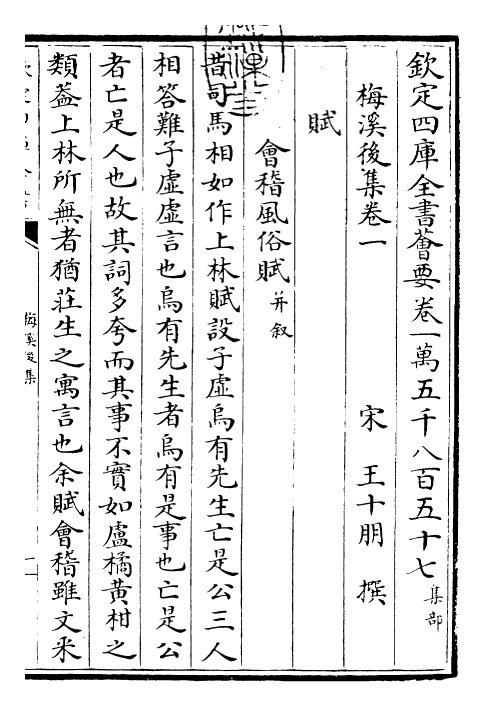 欽定四庫全書薈要卷一萬五千八百五十七 集部
梅溪後集卷一
宋 王十朋 撰
賦
會稽風俗賦 并叙
昔司馬相如作上林賦設子虛烏有先生亡是公三人
相答難子虛虛言也烏有先生者烏有是事也亡是公
者亡是人也故其詞多夸而其事不實如盧橘黃柑之
類葢上林所無者猶莊生之寓言也余賦會稽雖文采
梅溪後集
一